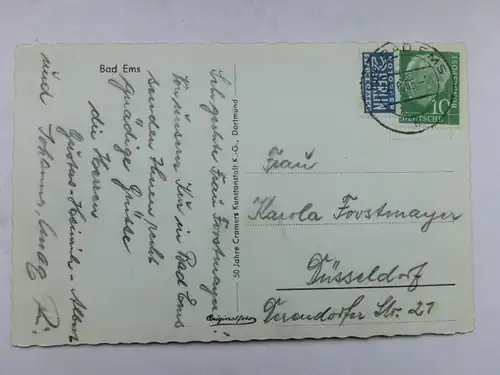 Bad Ems
Sehr geehrte Frau Forstmayer!
Kur in Bad Ems
senden Ihnen recht
gnädige Grüsse
die Herren
Gustav-Heinrich-Albert
und Johannes,
50 Jahre Cramers Kunstanstalt K.-G., Dortmund
Originalfoto
2
NOTOPFER
BERLIN
STEUERMARKE
BAD EMS
10
DEUTSCHE
BUNDESPOST
Frau
Karola Forstmayer
Düsseldorf
Derendorfer Str. 27